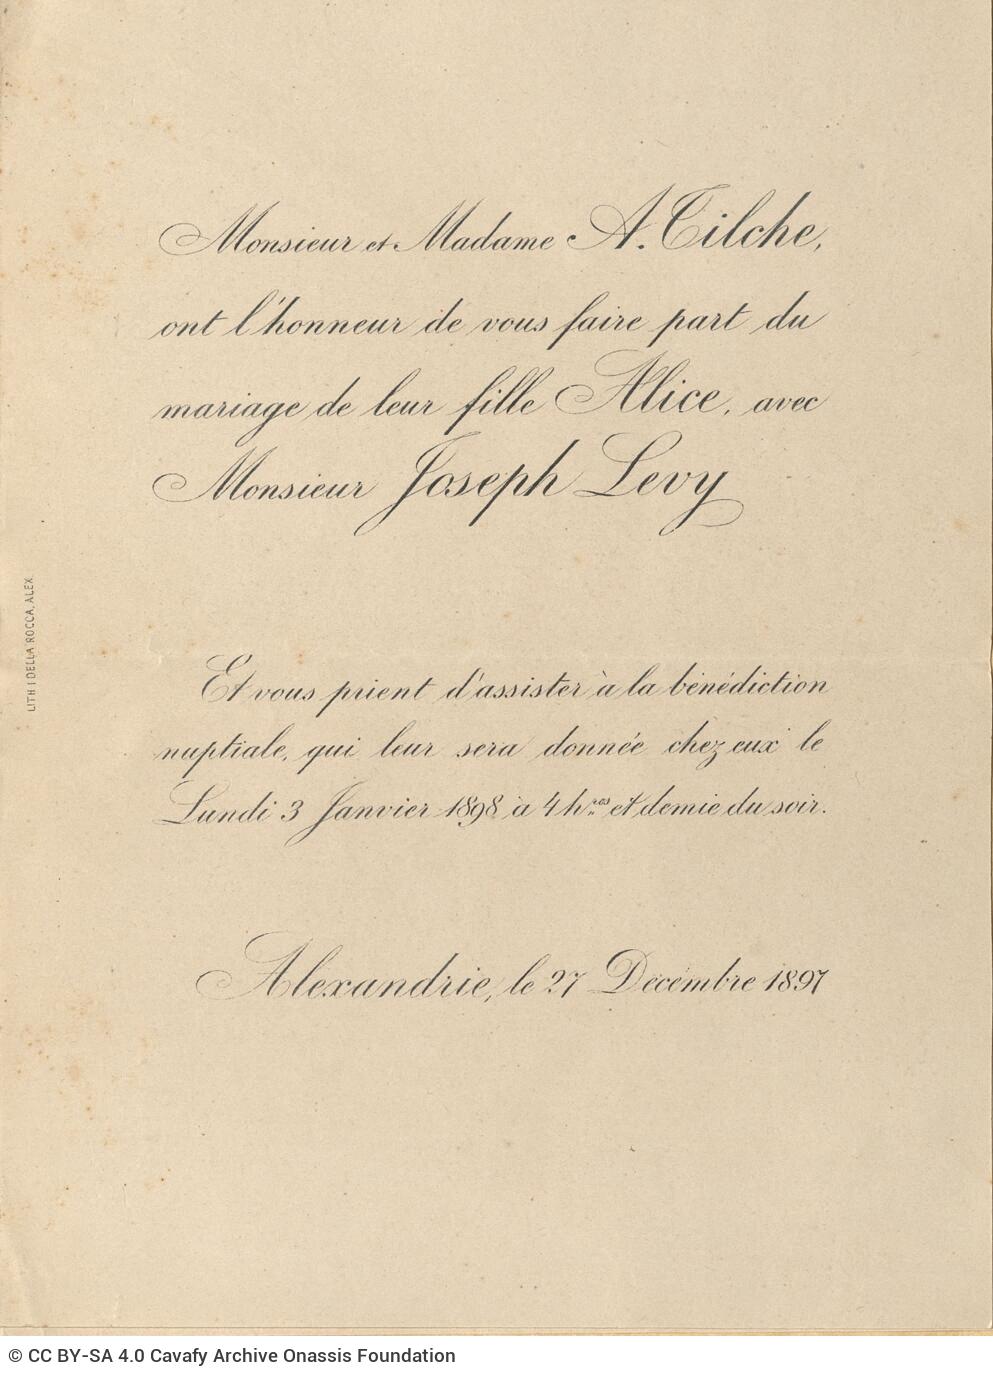 Monsieur et Madame A. Tilche,
ont l'honneur de vous faire part du
mariage de leur fille Alice, avec
Monsieur Joseph Levy
Et vous prient d'assister à la bénédiction
nuptiale, qui leur sera donnée chez eux le
Lundi 3 Janvier 1898 à 4 hres et demie du soir.
Alexandrie, le 27 Décembre 1897
LITH I DELLA ROCCA, ALEX.
© CC BY-SA 4.0 Cavafy Archive Onassis Foundation